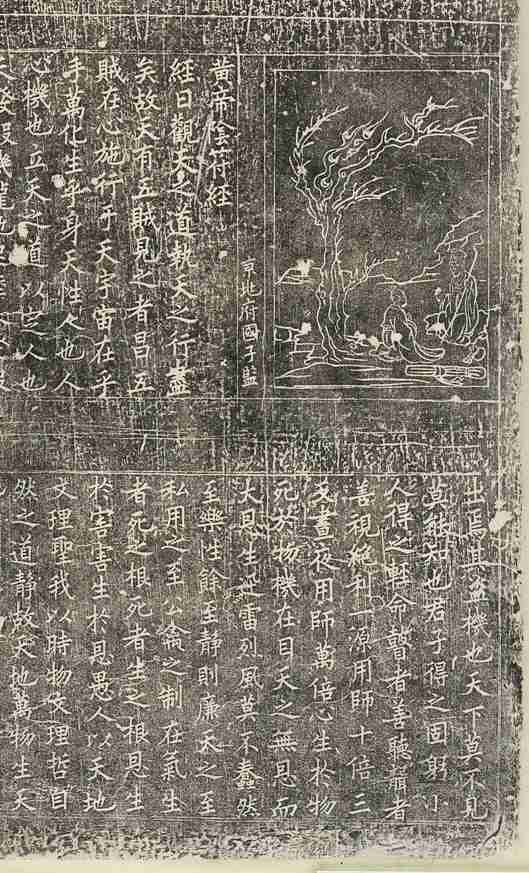 黃帝陰符經
京兆府國子監
經曰觀天之道執天之行盡
矣故天有五賊見之者昌五
賊在心施行乎天宇宙在乎
手萬化生乎身天性人也人
心機也立天之道以定人也
天發殺機龍
出焉其盜機也天下莫不見
莫能知也君子得之固躬小
人得之輕命瞽者善聽聾者
善視絕利一源用師十倍三
返晝夜用師萬倍心生於物
死於物機在目天之無恩而
大恩生迅雷烈風莫不蠢然
至樂性餘至靜則廉天之至
私用之至公禽之制在氣生
者死之根死者生之根恩生
於害害生於恩愚人以天地
文理聖我以時物文理哲自
然之道靜故天地萬物生天